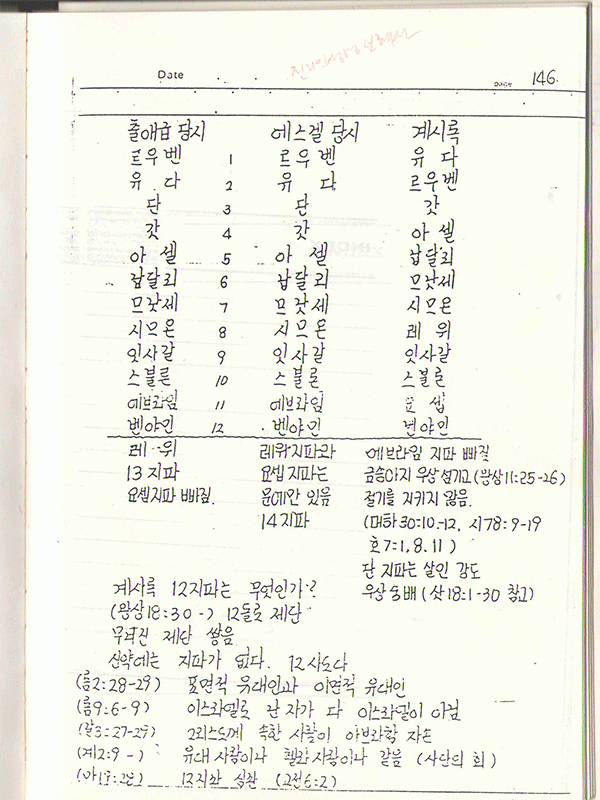 Date
146.
출애급 당시 에스겔 당시 계시록
르우벤 1 르우벤 유다
유다 2 유다 르우벤
단 3 단 갓
갓 4 갓 아셀
아셀 5 아셀 납달리
납달리 6 납달리 므낫세
므낫세 7 므낫세 시므온
시므온 8 시므온 레위
잇사갈 9 잇사갈 잇사갈
스블론 10 스블론 스블론
에브라임 11 에브라임 요셉
벤야민 12 벤야민 벤야민
레위 레위지파와 에브라임 지파 빠짐
13지파 요셉지파는 금송아지 우상 섬기고 (왕상11:25-26)
요셉지파 빠짐. 문에만 있음 절기를 지키지 않음.
14지파 (대하30:10-12, 시78:9-19
호7:1,8.11)
단 지파는 살인 강도
우상숭배 (삿18:1-30 참고)
계시록 12지파는 무엇인가?
(왕상18:30-) 12돌로 제단
무너진 제단 쌓음
신약에는 지파가 없다. 12사도다
(롬2:28-29) 표면적 유대인과 이면적 유대인
(롬9:6-9) 이스라엘로 난 자가 다 이스라엘이 아님
(갈3:27-29) 그리스도께 속한 사람이 아브라함 자손
(계2:9-) 유대 사람이나 헬라 사람이나 같음 (사단의 회)
12지파 심판 (고전6:2)